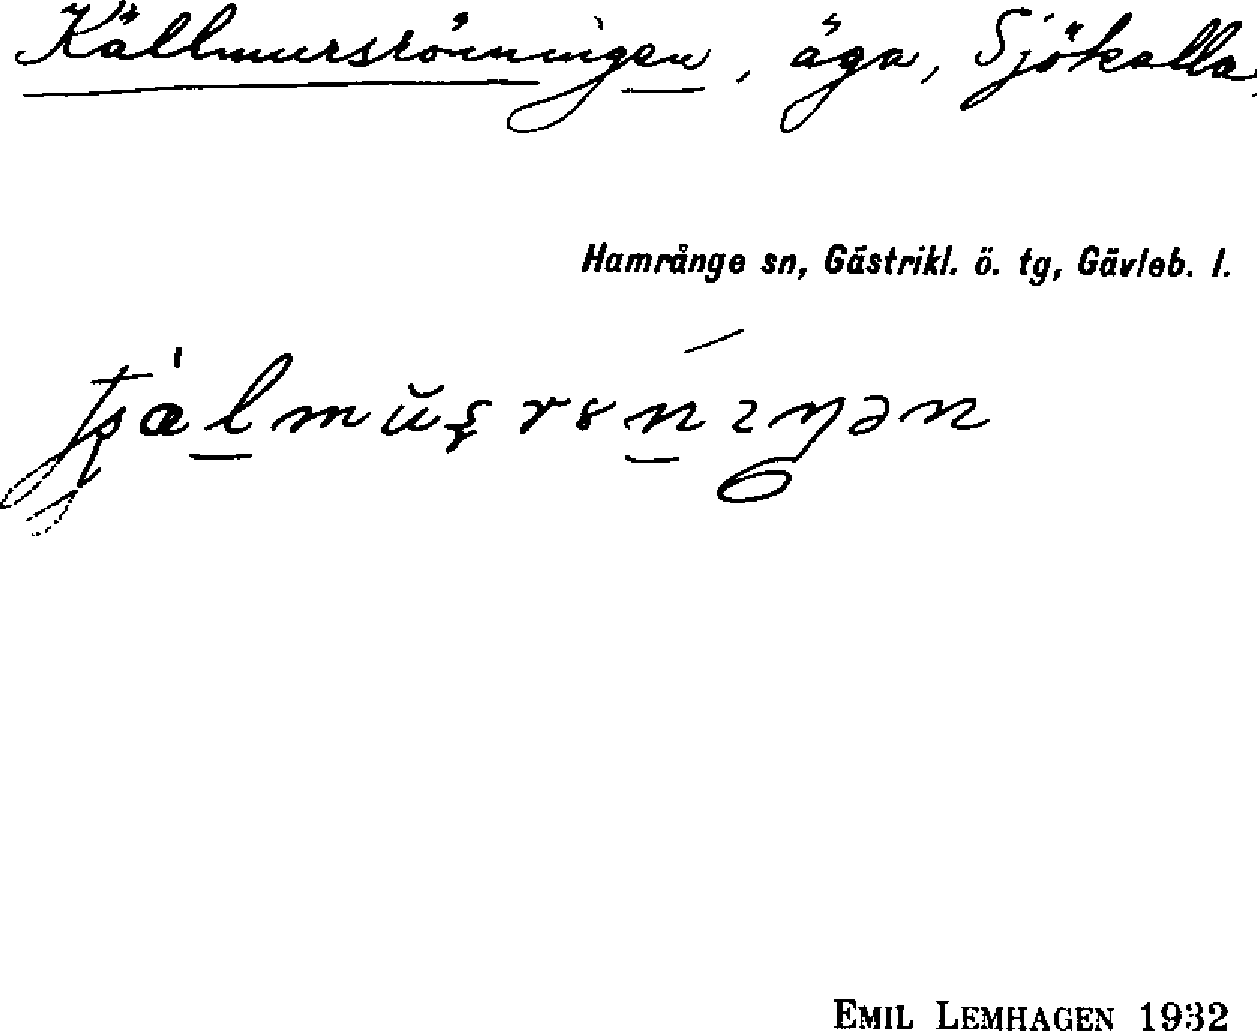 Källmursrönningen, äga, Sjökalla,
Hamrånge sn, Gästrikl. ö. tg, Gävleb. l.
EMIL LEMHAGEN 1932